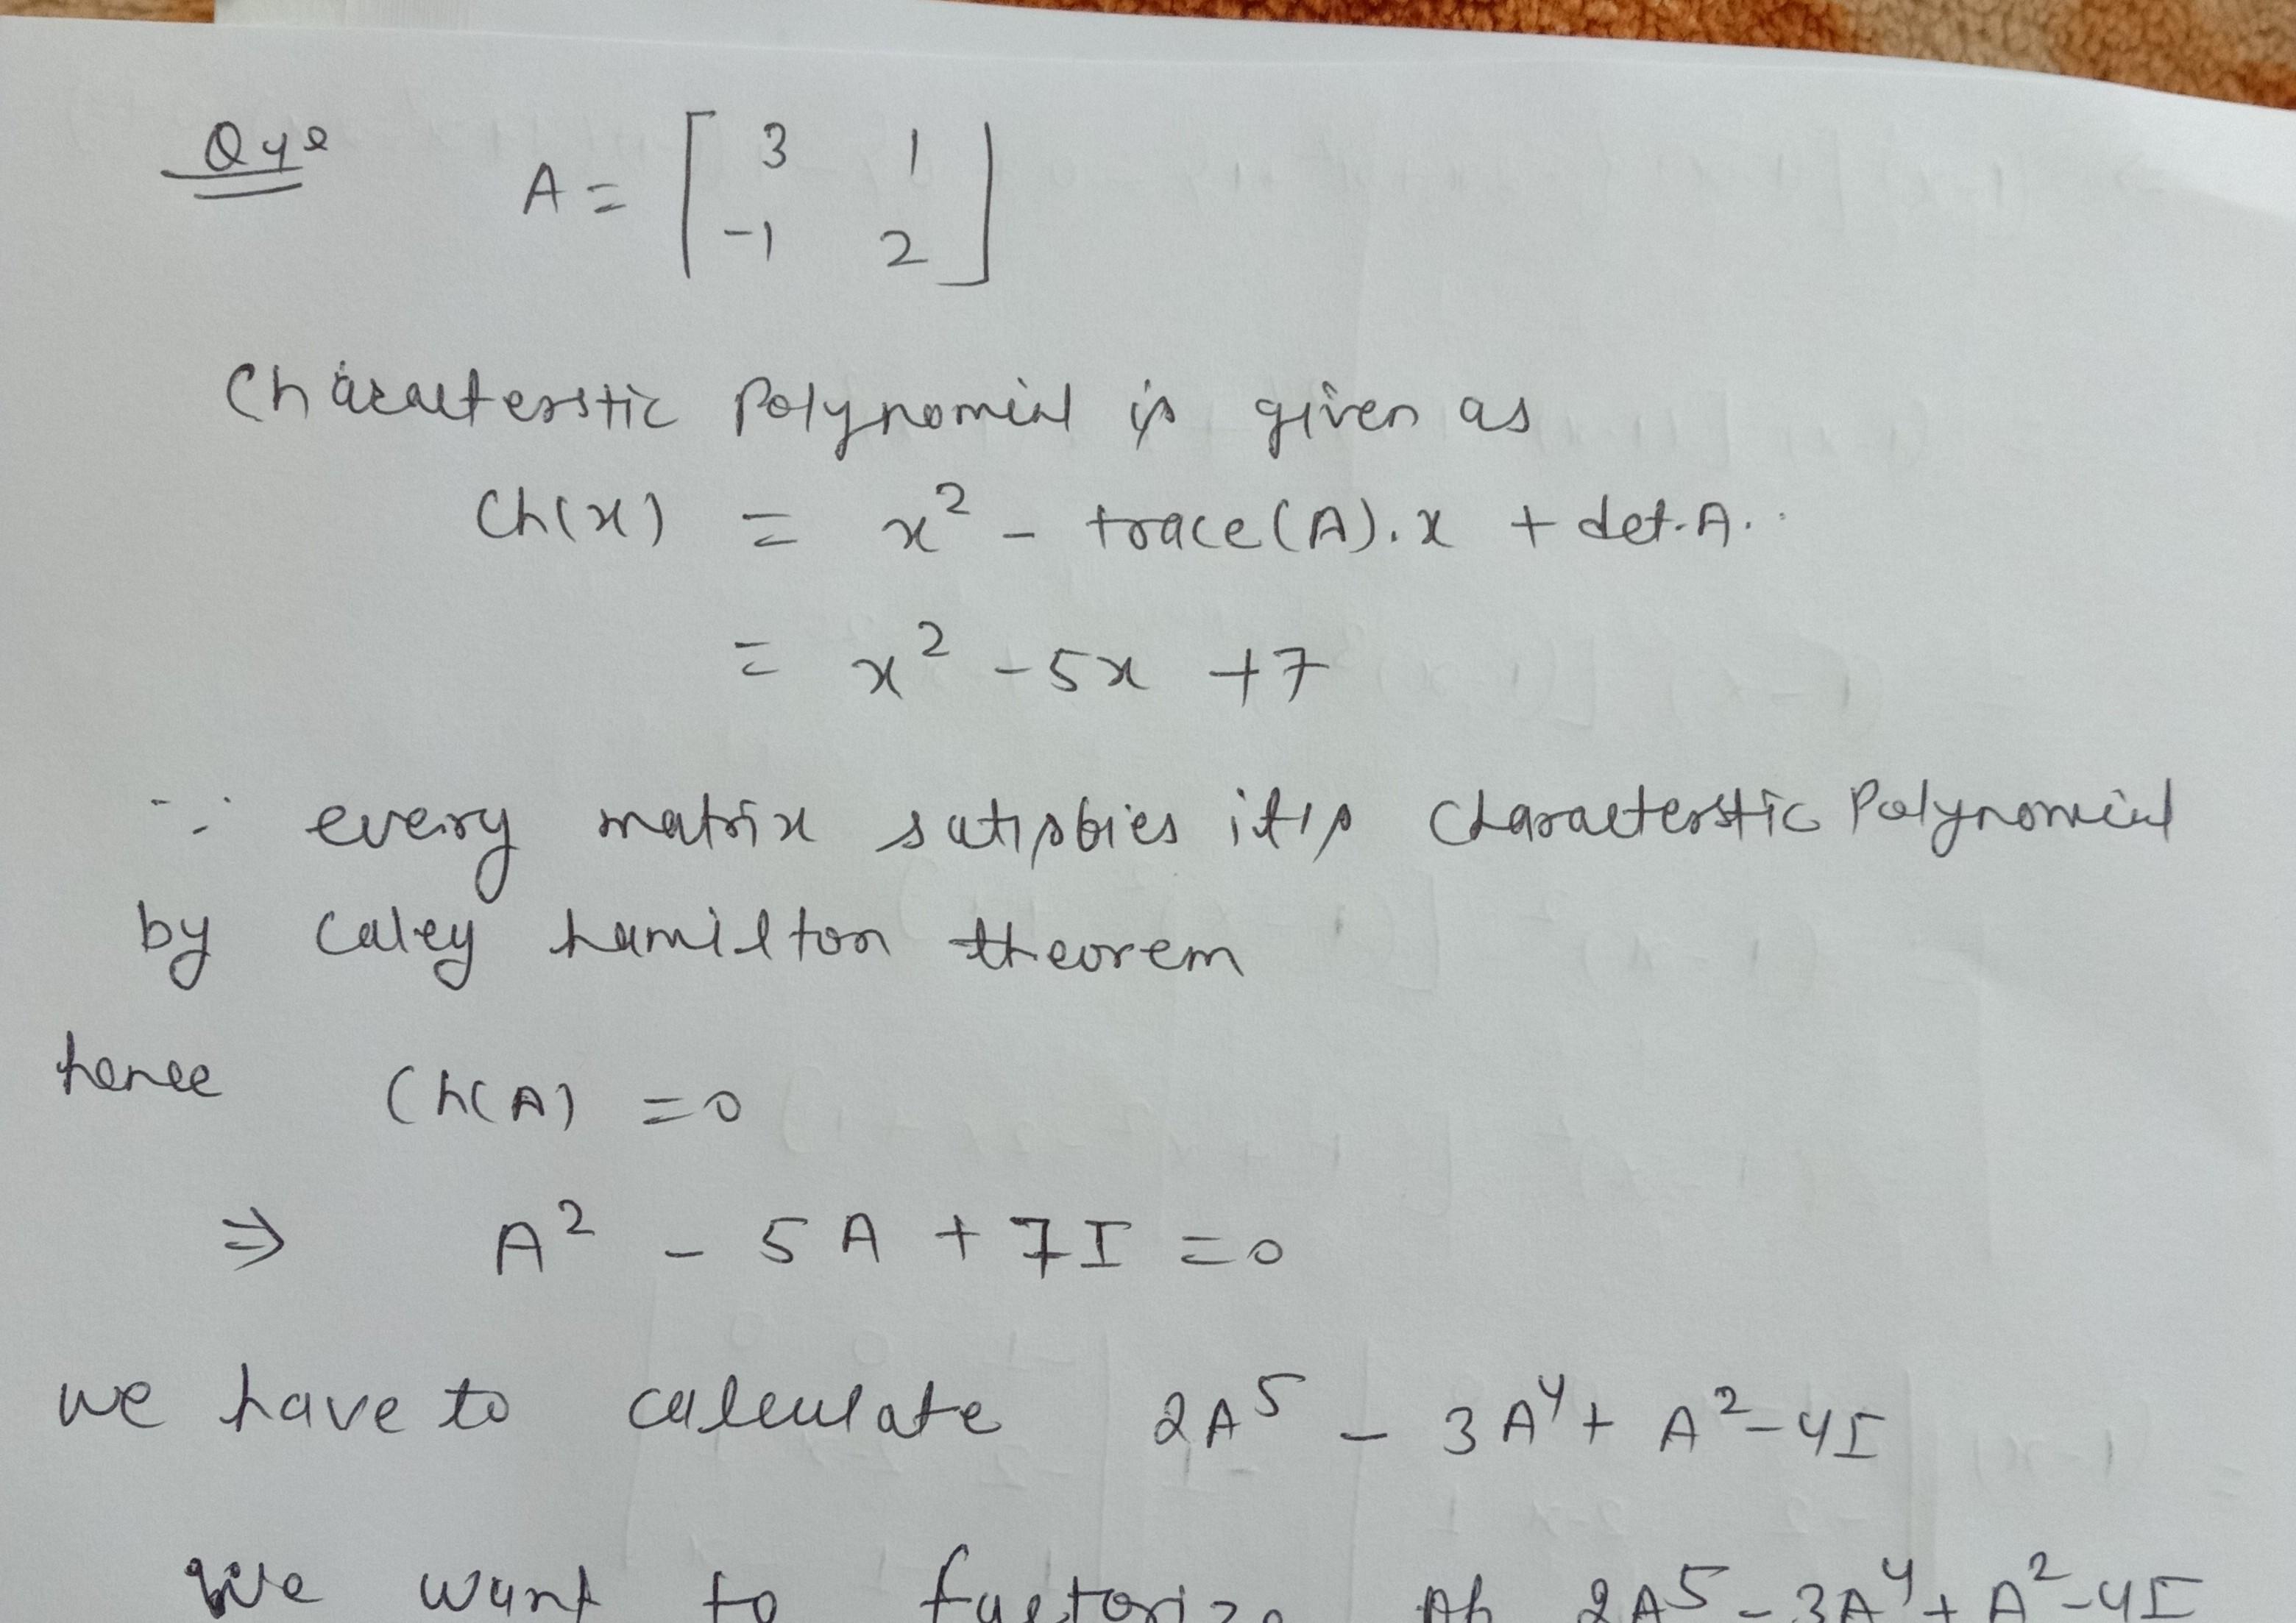 Que A = [ 3 1
-1 2 ]
Characterstic Polynomial is given as
Ch(x) = x² - trace(A).x + det.A.
= x² - 5x + 7
∵ every matrix satisfies it's characterstic Polynomial
by caley hamilton theorem
hence Ch(A) = 0
⇒ A² - 5A + 7I = 0
we have to calculate 2A⁵ - 3A⁴ + A² - 4I
We want to factorize of 2A⁵ - 3A⁴ + A² - 4I